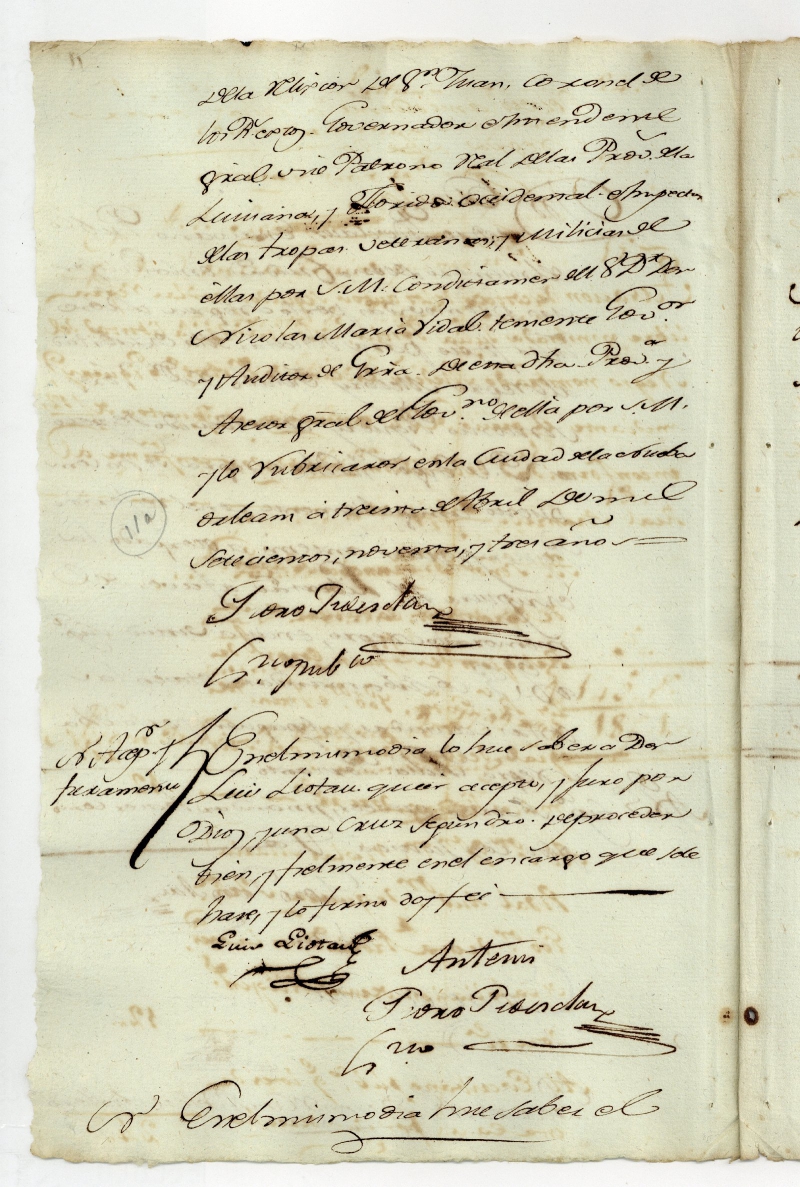 dela Religion de Sn. Juan, Coronel de
los Rs. extos. Governador e Intendente
gral. vice Patrono Rl. delas Prov.s dela
Luisiana, y Florida ocidental e Inspector
delas tropas veteranas, y Milicias de
ellas por S.M. Con dictamen del Sr. Dn. Dn
Nicolas Maria Vidal teniente Govor.
y Auditor de Grra. de esta dha Prova. y
Asesor gral. del Govno. de ella por S.M.
y lo rubricaron en la Ciudad dela Nueba
orleans á treinta de Abril de mil
setecientos, noventa, y tres años
Pedro Pedesclaux
Esno. pubco
Not. Acepon. y
juramento
En el mismo dia lo hice saber a Don
Luis Liotau. quien acepto, y juro por
Dios, y una Cruz segun dro. de proceder
bien, y fielmente en el encargo que sele
hace, y lo firmo doy feé
Luis Liotau
Antemi
Pedro Pedesclaux
Esno
N En el mismo dia hice saber el